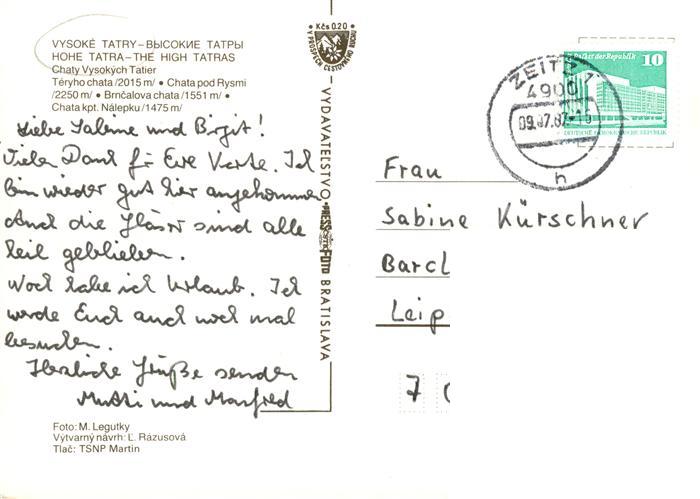 VYSOKÉ TATRY – ВЫСОКИЕ ТАТРЫ
HOHE TATRA – THE HIGH TATRAS
Chaty Vysokých Tatier
Téryho chata /2015 m/ • Chata pod Rysmi
/2250 m/ • Brnčalova chata /1551 m/ •
Chata kpt. Nálepku /1475 m/
Liebe Sabine und Birgit!
Vielen Dank für Eure Karte. Ich
bin wieder gut hier angekommen.
Auch die Gläser sind alle
heil geblieben.
Noch habe ich Urlaub. Ich
werde Euch auch noch mal
besuchen.
Herzliche Grüße senden
Mutti und Manfred
Foto: M. Legutky
Výtvarný návrh: Ľ. Rázusová
Tlač: TSNP Martin
Kčs 0.20
V PROSPECH CESTOVNÉHO RUCHU
VYDAVATEĽSTVO PRESSFOTO BRATISLAVA
ZEITZ 1
4900
09.07.87-16
h
Palast der Republik 10
DEUTSCHE DEMOKRATISCHE REPUBLIK
Frau
Sabine Kürschner
Barcl
Leip
7